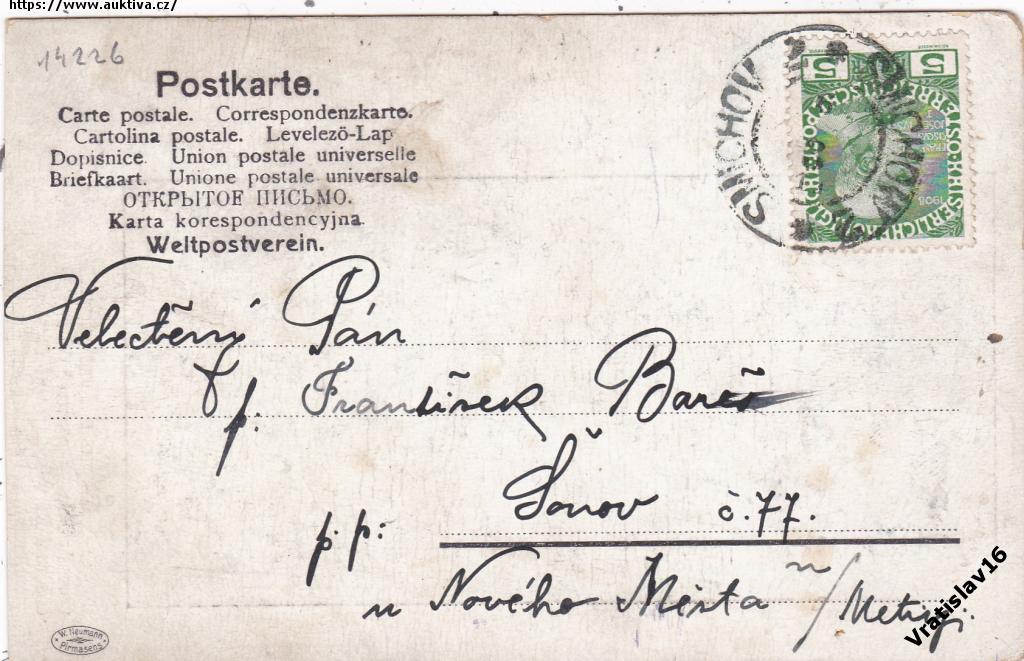 https://www.auktiva.cz/
14226
Postkarte.
Carte postale. Correspondenzkarte.
Cartolina postale. Levelezö-Lap
Dopisnice. Union postale universelle
Briefkaart. Unione postale universale
ОТКРЫТОЕ ПИСЬМО.
Karta korespondencyjna
Weltpostverein.
SMICHOV SMÍCHOV
5 5
1908
Velectění Pán
p. František Bareš
Šonov č. 77.
p. p:
u Nového Města n/Metují.
W. Neumann
Pirmasens
Vratislav16